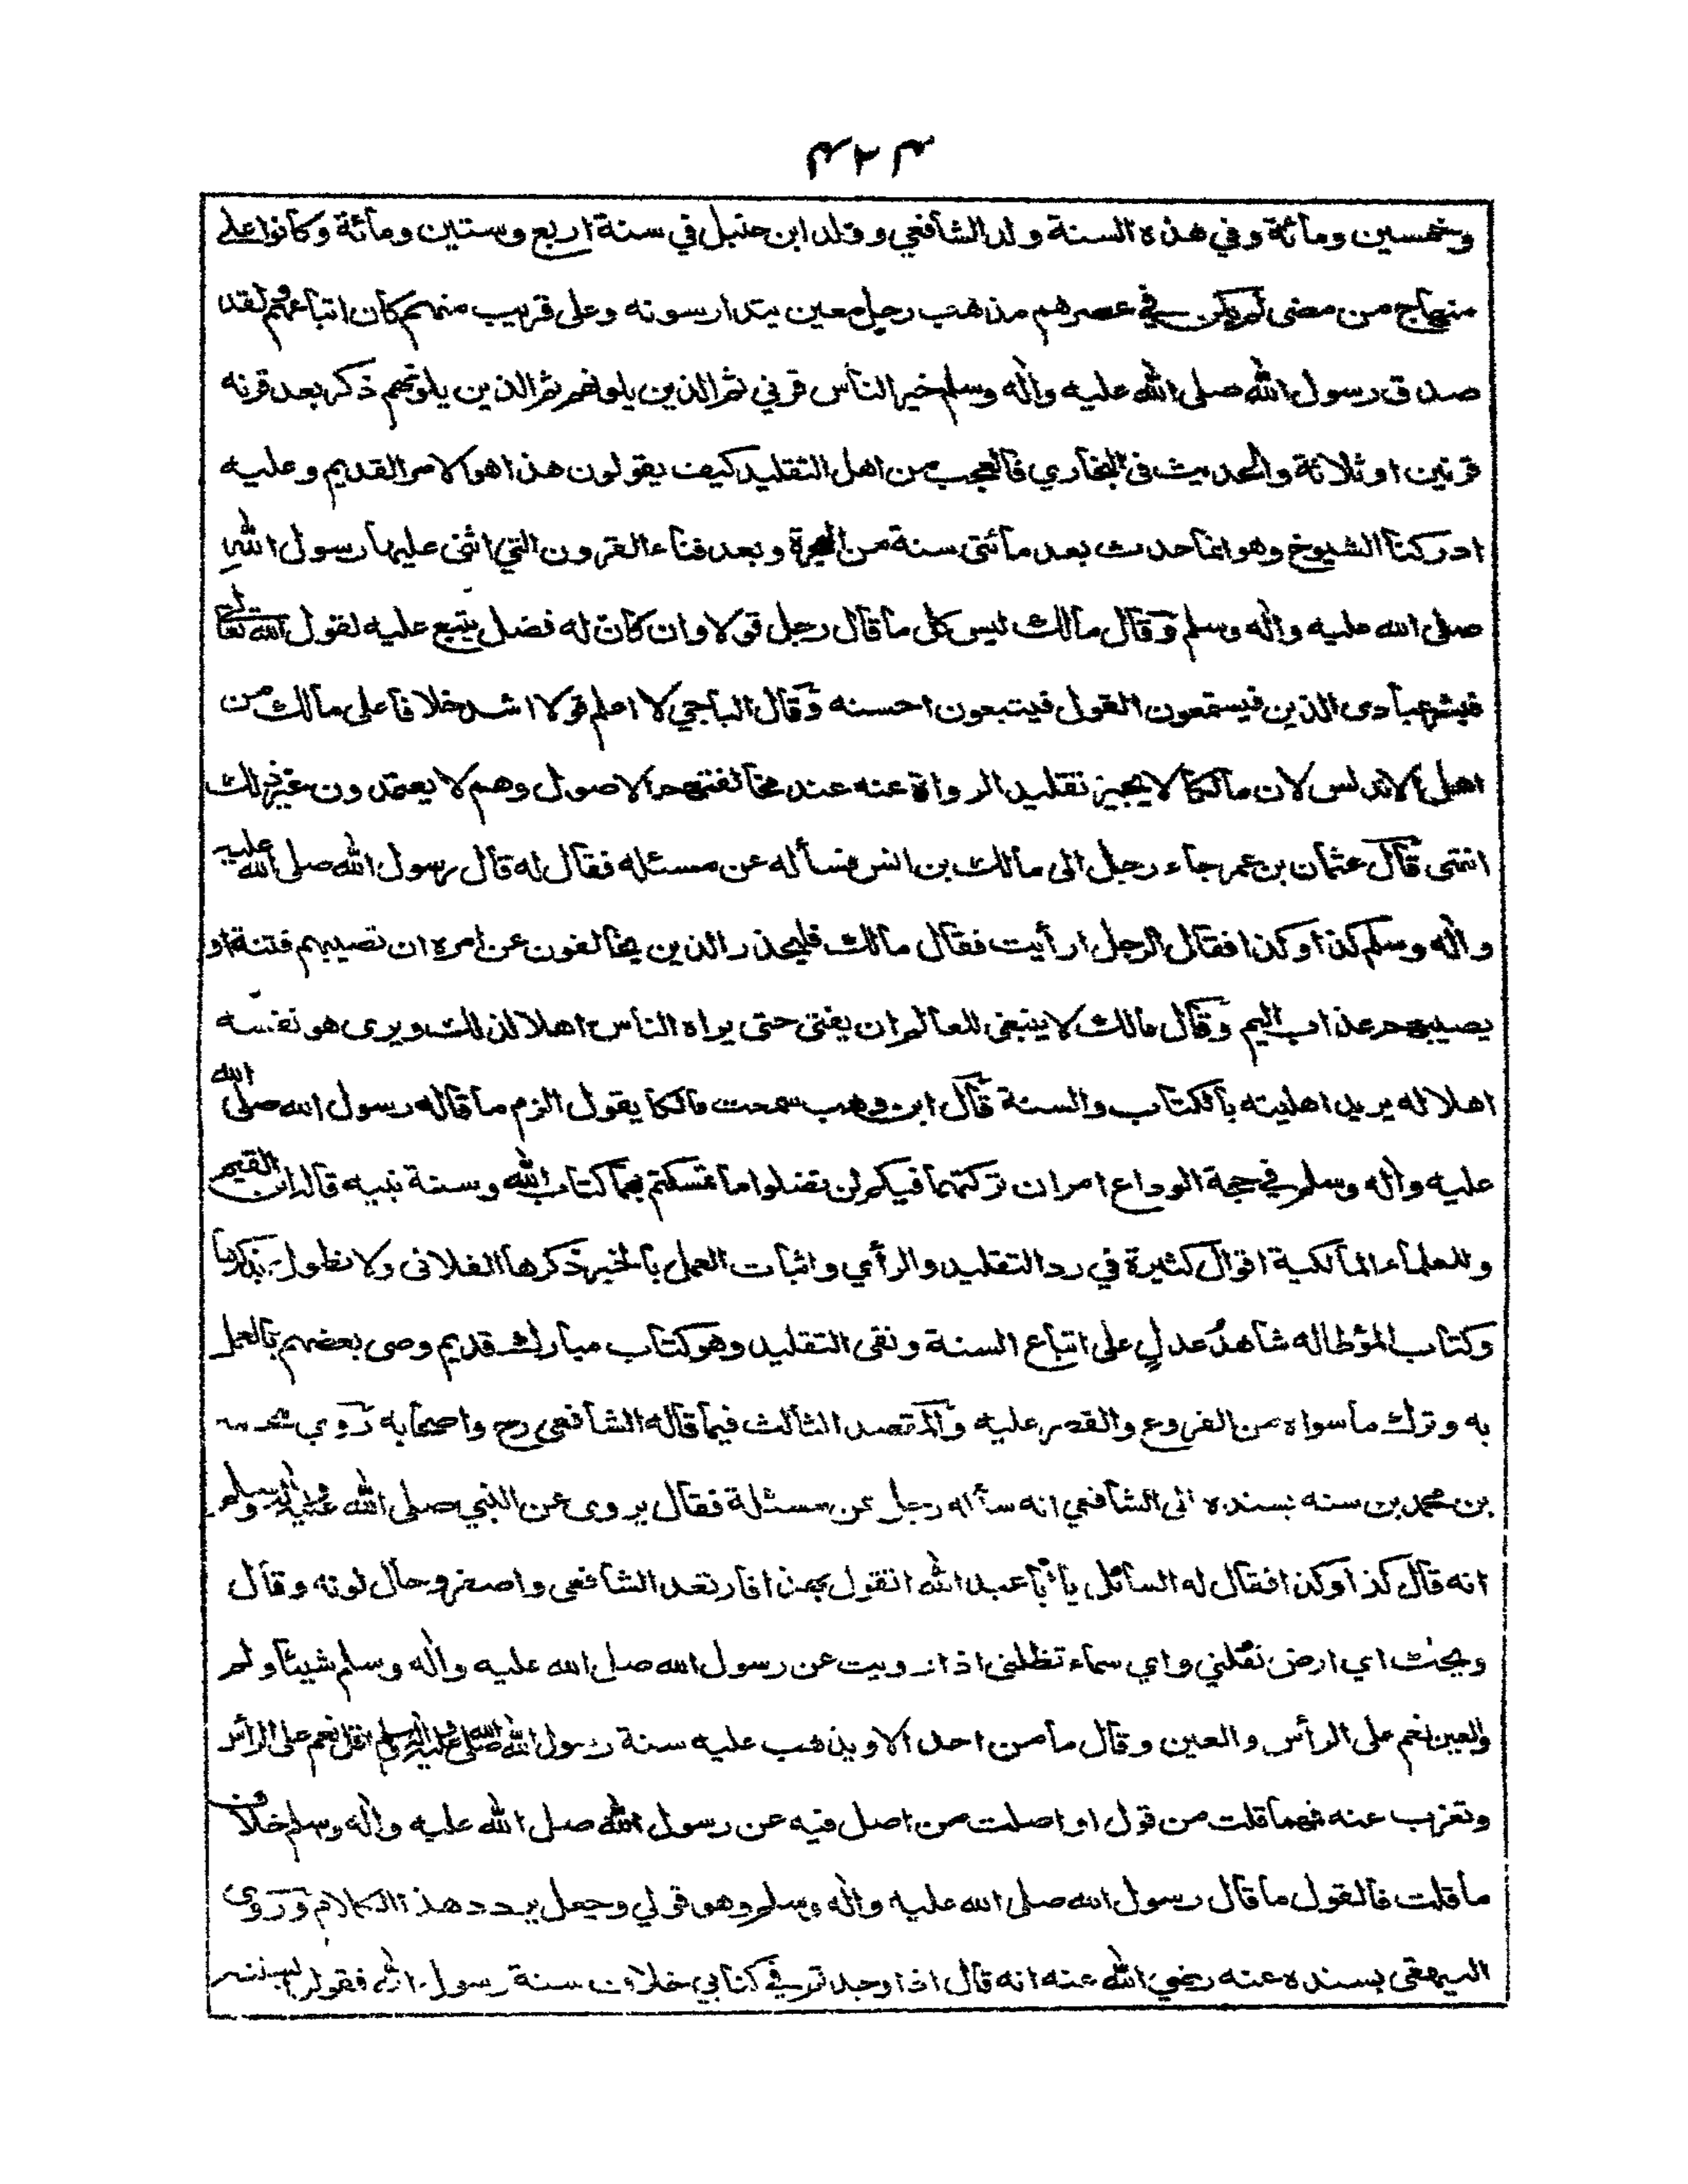 ٤٢٤
وخمسين ومائة وفي هذه السنة ولد الشافعي وولد ابن حنبل في سنة اربع وستين ومائة وكانوا على
منهاج من مضى لم يكن في عصرهم مذهب رجل معين يتدارسونه وعلى قريب منهم كان اتباعهم ولقد
صدق رسول الله صلى الله عليه واله وسلم خير الناس قرني ثم الذين يلونهم ثم الذين يلونهم ذكر بعد قرنه
قرنين او ثلاثة والحديث في البخاري فالعجب من اهل التقليد كيف يقولون هذا هو الامر القديم وعليه
ادركنا الشيوخ وهو انما حدث بعد مائتى سنة من الهجرة وبعد فناء القرون التي اثنى عليها رسول الله
صلى الله عليه واله وسلم وقال مالك ليس كل ما قال رجل قولا وان كان له فضل يتبع عليه لقول الله تعالى
فبشر عبادى الذين فيستمعون القول فيتبعون احسنه وقال الباجي لا اعلم قولا اشد خلافا على مالك من
اهل الاندلس لان مالكا لا يجيز تقليد الرواة عنه عند مخالفتهم الاصول وهم لا يعتمدون غير ذلك
انتهى قال عثمان بن عمر جاء رجل الى مالك بن انس فسأله عن مسئله فقال له قال رسول الله صلى الله عليه
واله وسلم كذا وكذا فقال الرجل ارأيت فقال مالك فليحذر الذين يخالفون عن امره ان تصيبهم فتنة او
يصيبهم عذاب اليم وقال مالك لا ينبغي للعالم ان يفتى حتى يراه الناس اهلا لذلك ويرى هو نفسه
اهلا له يريد اهليته بالكتاب والسنة قال ابن وهب سمعت مالكا يقول الزم ما قاله رسول الله صلى الله
عليه واله وسلم في حجة الوداع امران تركتهما فيكم لن تضلوا ما تمسكتم بهما كتاب الله وسنة نبيه قال ابن القيم
وللعلماء المالكية اقوال كثيرة في رد التقليد والرأي واثبات العمل بالخبر ذكرها الفلانى ولا نطول بذكرها
وكتاب المؤطا له شاهدُ عدلٍ على اتباع السنة ونفى التقليد وهو كتاب مبارك قديم وصى بعضهم بالعمل
به وترك ما سواه من الفروع والقصر عليه والمقصد الثالث فيما قاله الشافعى رح واصحابه روي محمد
بن محمد بن سنه بسنده الى الشافعي انه سأله رجل عن مسئلة فقال يروى عن النبي صلى الله عليه واله وسلم
انه قال كذا وكذا فقال له السائل يا ابا عبد الله اتقول بهذا فارتعد الشافعى واصفر وحال لونه وقال
ويحك اي ارض تقلني واي سماء تظلنى اذا رويت عن رسول الله صلى الله عليه واله وسلم شيئا ولم
اقل نعم على الرأس والعين نعم على الرأس والعين وقال ما من احد الا ويذهب عليه سنة رسول الله صلى الله عليه واله وسلم
وتعزب عنه فمهما قلت من قول او اصلت من اصل فيه عن رسول الله صلى الله عليه واله وسلم خلاف
ما قلت فالقول ما قال رسول الله صلى الله عليه واله وسلم وهو قولي وجعل يردد هذا الكلام وروى
البيهقى بسنده عنه رضي الله عنه انه قال اذا وجدتم في كتابي خلاف سنة رسول الله فقولوا بسنته